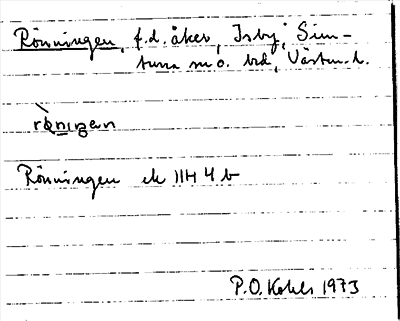 Rönningen, f.d. åker, Isby, Sim-
tuna sn o. hd, Västm. l.
rönıŋan
Rönningen ek 11H 4 b
P.O. Kohls 1973